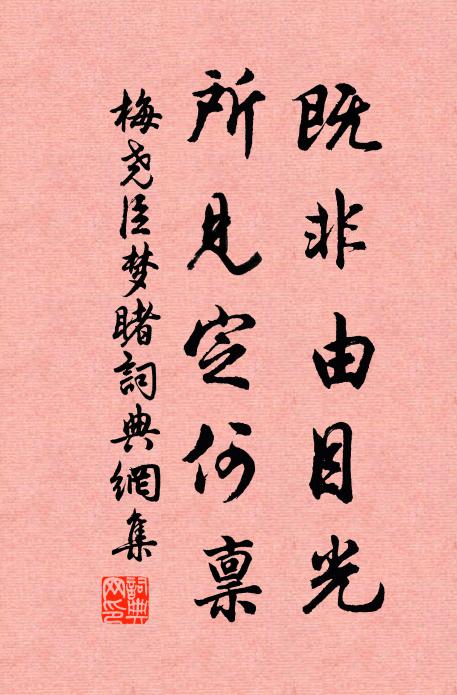 既非由目光
所見定何禀
梅尧臣梦睹詞典網集
詞典网印